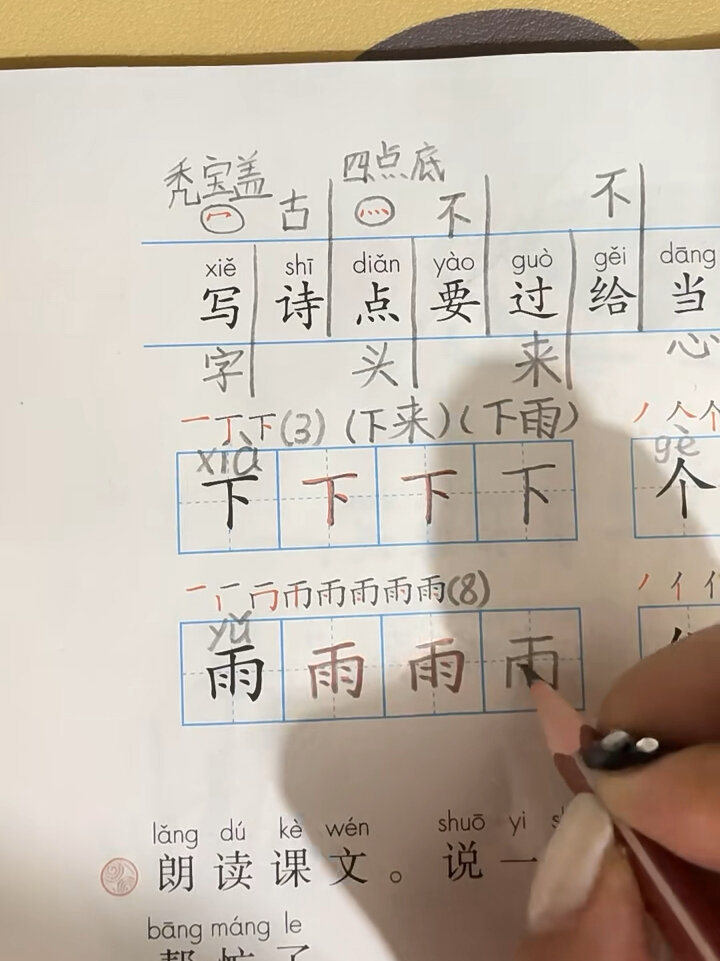 秃宝盖 四点底
古 不 不
xiě shī diǎn yào guò gěi dāng
写 诗 点 要 过 给 当
字 头 来 心
一丁下(3) (下来)(下雨) ノ人个
xià gè
下 下 下 下 个
(8)
yǔ
雨 雨 雨 雨
lǎng dú kè wén shuō yi
朗读课文。说一
bāng máng le
帮忙了